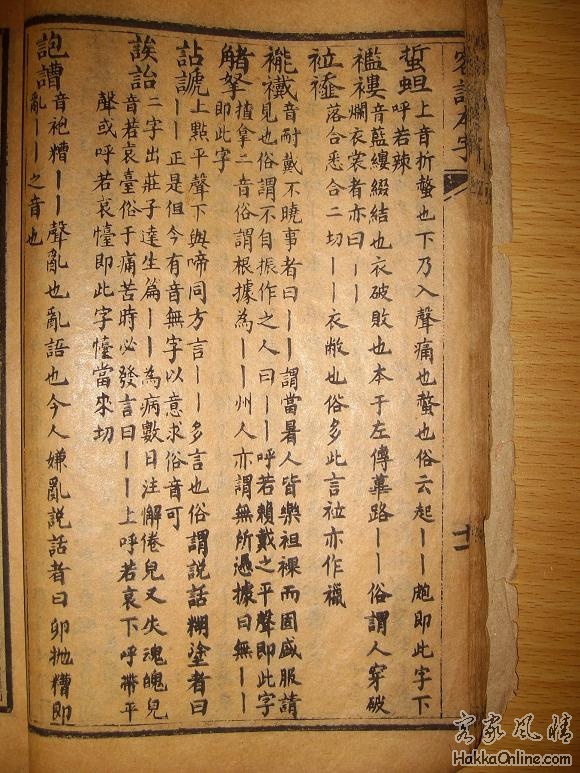 客話本字
十一
蜇蛆上音折螫也下乃入聲痛也螫也俗云起丨丨皰即此字下
呼若辣
襤褸音藍縷綴結也衣破敗也本于左傳蓽路丨丨俗謂人穿破
爛衣裳者亦曰丨丨
落合悉合二切丨丨衣敝也俗多此言
音耐戴不曉事者曰丨丨謂當暑人皆樂袒裸而固盛服請
見也俗謂不自振作之人曰丨丨呼若賴戴之平聲即此字
揸拿二音俗謂根據為丨丨州人亦謂無所憑據曰無丨丨
即此字
詀謕上點平聲下與啼同方言丨丨多言也俗謂說話糊塗者曰
丨丨正是但今有音無字以意求俗音可
誒詒二字出莊子達生篇丨丨為病數日注解倦皃又失魂魄皃
音若哀臺俗于痛苦時必發言曰丨丨上呼若哀下呼帶平
聲或呼若哀懛即此字懛當來切
音袍糟丨丨聲亂也亂語也今人嫌亂說話者曰卵拋糟即
亂丨丨之音也
客家風情
HakkaOnline.com